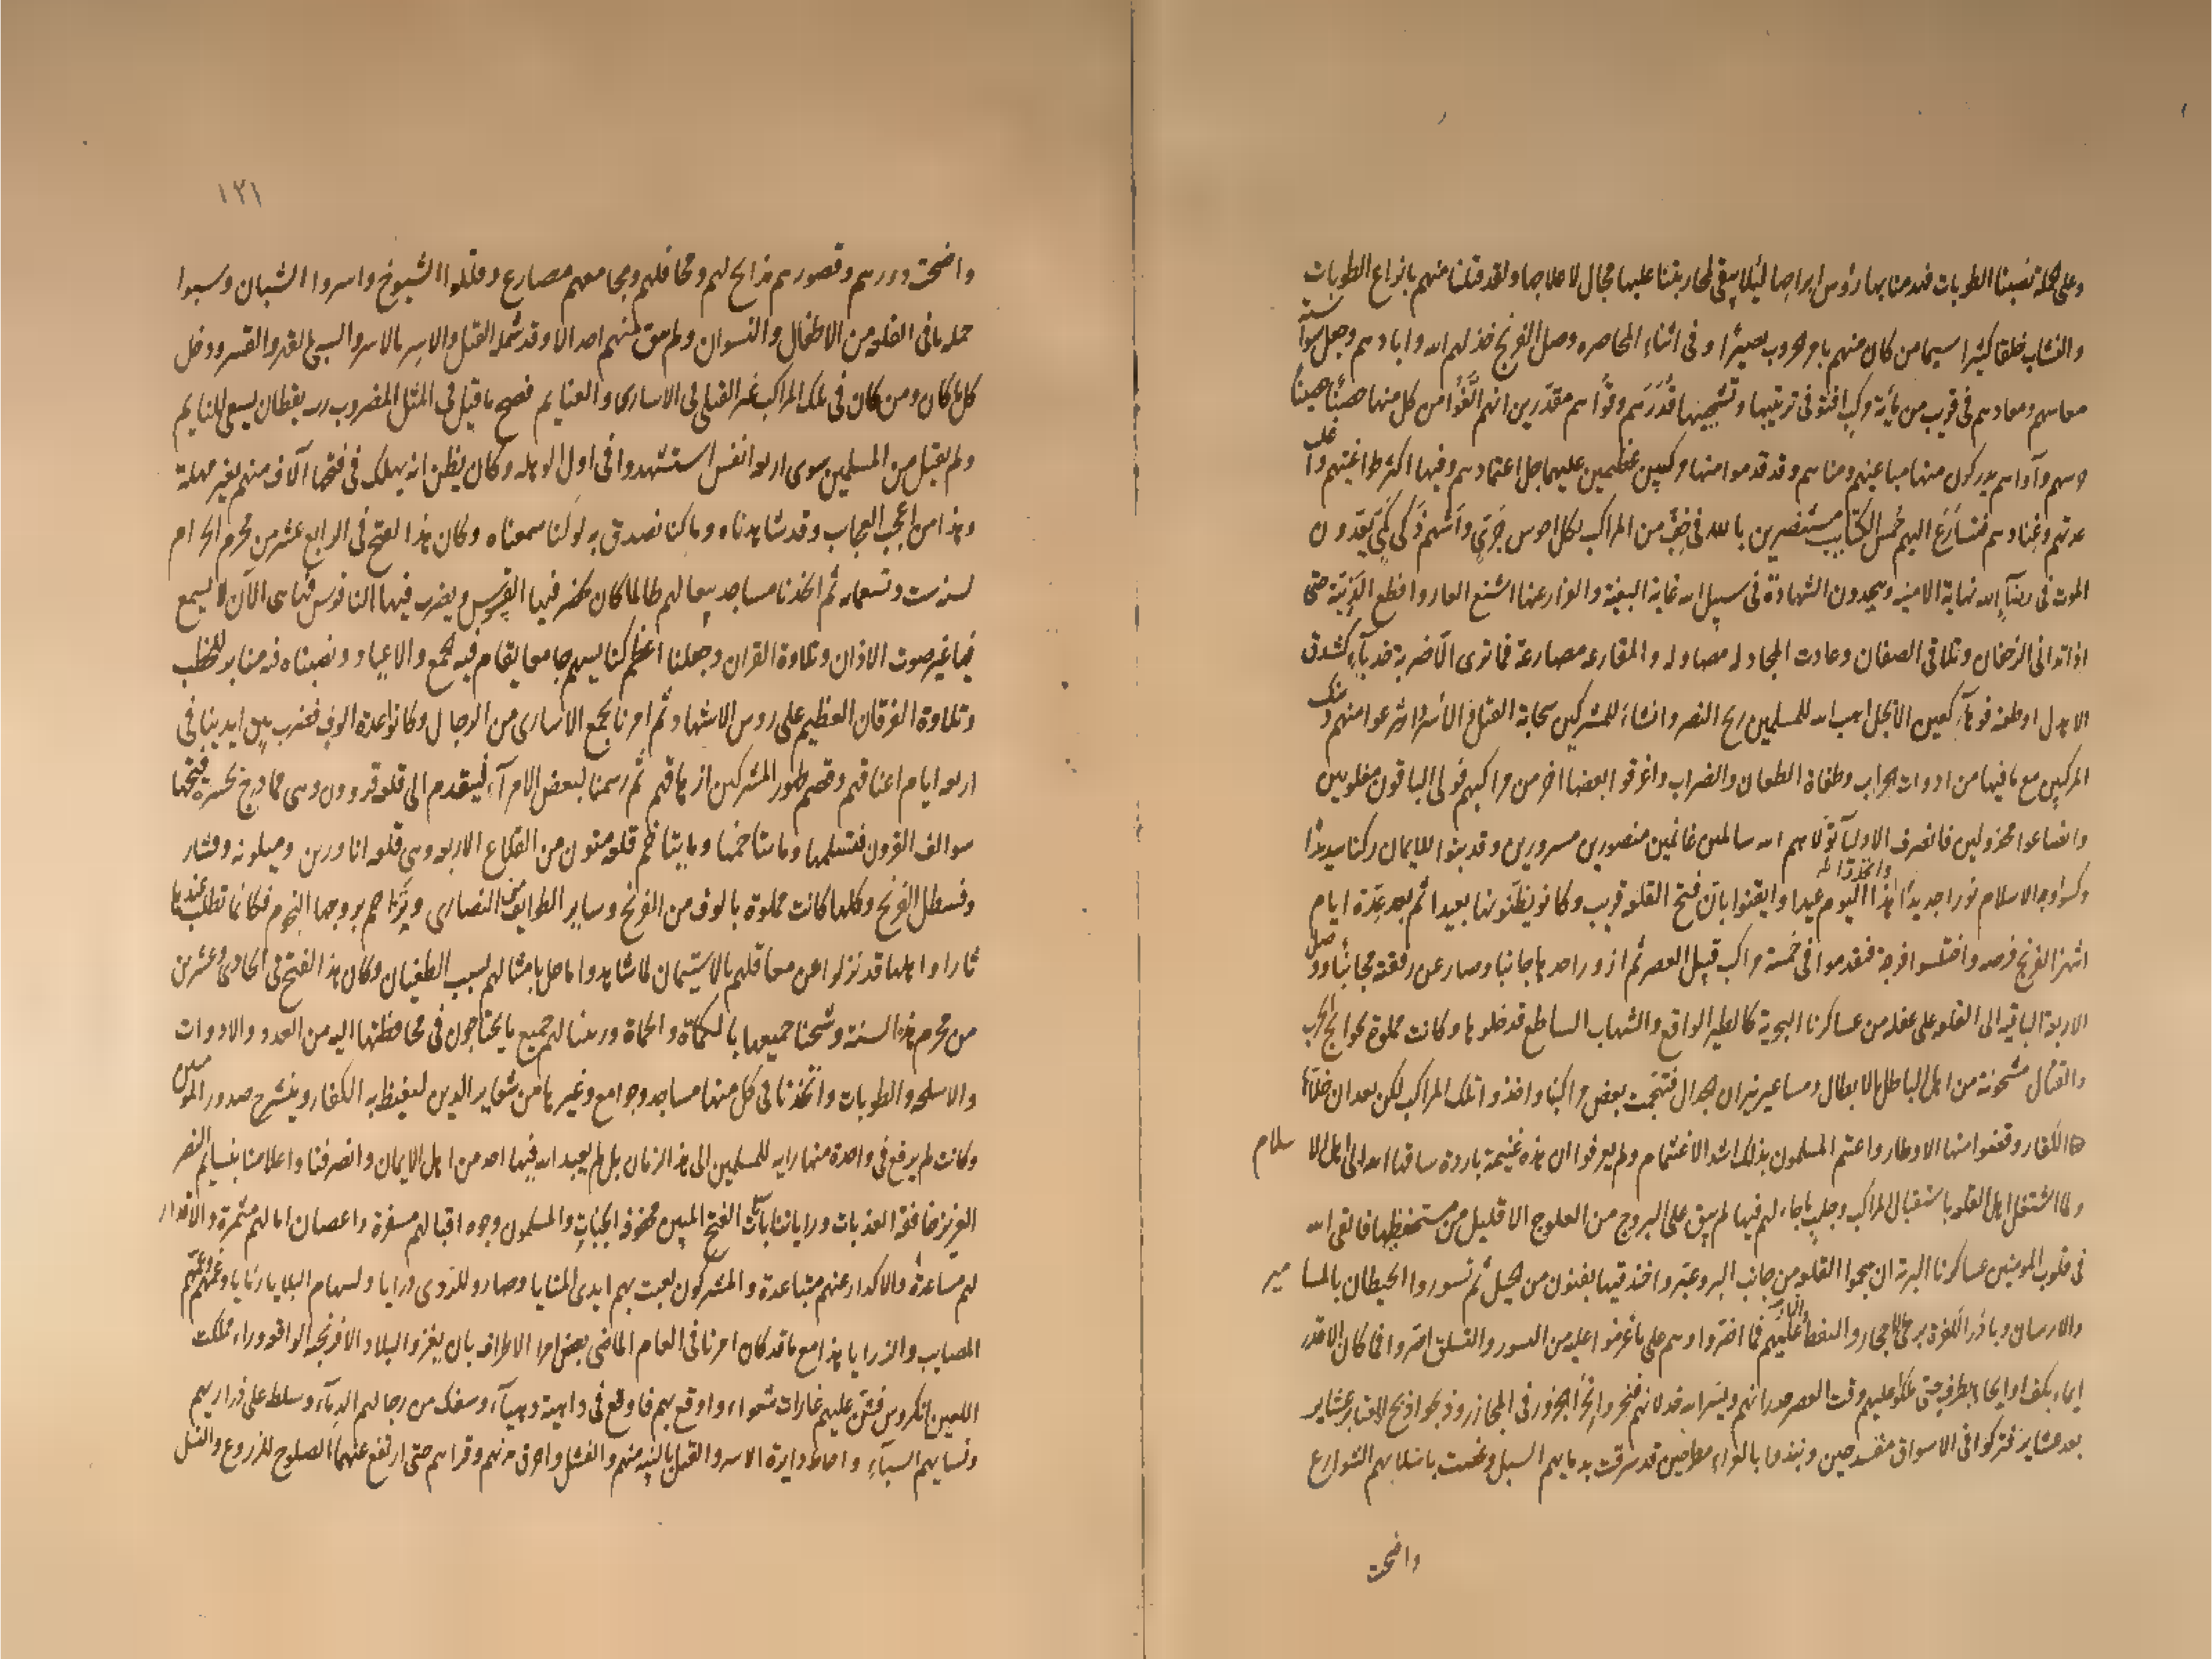 وعلى محله نصبنا الطوبات فهدمنا بها رؤس ابراجها لئلا يبقى لمحاربتنا عليها مجال لاصلاحها ولقد قتلنا منهم بانواع الطوبات
والنشاب خلقا كثيرا سيما من كان منهم بامر الحروب بصيرا وفى اثناء المحاصره وصل الفرنج خذلهم الله وابادهم وجعل سوا سنه
معاسهم ومعادهم فى قريب من مأية مركب افنوا فى ترتيبها وتشحينها قدرهم وقواهم مقدرين انهم الفوا من كل منها حصنا حصينا
وسهم وآواهم يدركون منها مباغيهم ومناهم وقد قدموا منها مركبين عظيمين عليهما جل اعتمادهم وفيها اكثر طواغيتهم واغلب
عدتهم وعنادهم فتسارع اليهم خمس الكتايب مستنصرين بالله فى خف من المراكب لكل احوس جرى واشهم ذكى كمى يعدون
الموت فى رضآء الله نهاية الامنية ويجدون الشهادة فى سبيل الله غاية البغية والفرار عنها اشنع العار وافظع الدنية حتى
اذا تدانى الزحفان وتلاقى الصفان وعادت المجادله مصاوله والمقارعه مصارعة فما ترى الا ضربة خدبآء كشدق
الاهدل او طعنه فوهآء كعين الانجل اهب الله للمسلمين ريح النصر وانشاء للمشركين سحابة القتل والأسر وانتزعوا منهم ذينك
المركبين مع ما فيها من ادوات الحراب وطغاة الطعان والضراب واغرقوا بعضا اخر من مراكبهم فولى الباقون مغلوبين
وانصاعوا مخذولين فانصرف الاوليآء تولاهم الله سالمين غانمين منصورين مسرورين وقد بنوا للايمان ركنا سديدا
وكسوا وجه الاسلام نورا جديدا واتخذوا لله هذا اليوم عيدا وايقنوا بان فتح القلعه قريب وكانو يظنونها بعيدا ثم بعد عدة ايام
انتهز الفرنج فرصه واختلسوا فرجة فتقدموا فى خمسة مراكب قبيل العصر ثم ازور احدها جانبا وصار عن رفقته مجانبا ووصل
الاربعة الباقيه الى القلعه على غفلة من عساكرنا البحرية كالطير الواقع والشهاب الساطع قد خلوها وكانت مملوة بحوايج الحرب
والقتال مشحونة من اهل الباطل بالابطال ومساعير نيران الجدال فتنحت بعض مراكبنا واخذوا تلك المراكب لكن بعد ان خلاها
الكفار وقضوا منها الاوطار واغتم المسلمون بذلك اشد الاغتمام ولم يعرفوا ان هذه غنيمة باردة ساقها الله الى اهل الاسلام
ولما اشتغل اهل القلعه باستقبال المراكب وجلب ما جاء لهم فيها لم يبق على البروج من العلوج الا قليل من مستحفظيها فالقى الله
فى قلوب المومنين عساكرنا البرية ان هجموا القلعه من جانب البر وعبروا خندقها بفنون من الحيل ثم تسوروا الحيطان بالمسامير
والارسان وبادر الكفرة برمى الاحجار والنفط النار عليهم فما اخترو اوهم على ما عزموا عليه من التسور والتسلق اصروا فما كان الا قدر
ايماء بكف او ايحاء بطرف حتى ملكوا عليهم وقت العصر جدرانهم ويسر الله خذلانهم فنحروا نحر الجزور فى المجازر وذبحوا ذبح الاغنام عشاير
بعد عشاير فتركوا فى الاسواق منفسدحين ونبذوا بالعراء مطرحين قد شرقت بدمايهم السبل وغصت باشلايهم الشوارع
واضحت
١٢١
واضحت دورهم وقصورهم مذابح لهم ومحافلهم ومجامعهم مصارع وقتلوا الشيوخ واسروا الشبان وسبوا
جملة ما فى القلعه من الاطفال والنسوان ولم يبق منهم احد الا وقد شمله القتل والاسر بالاسر والسبى القهر والقسر ودخل
كل ما كان ومن كان فى تلك المراكب غير القتلى فى الاسارى والغنايم فصح ما قيل فى المثل المضروب رب يقظان يسعى للنايم
ولم يقتل من المسلمين سوى اربعة انفس استشهدوا فى اول الوهله وكان يظن انه يهلك فى فتحها آلاف منهم بغير مهلة
وهذا من اعجب العجاب وقد شاهدناه وما كنا نصدق به لو كنا سمعناه وكان هذا الفتح فى الرابع عشر من محرم الحرام
لسنة ست وتسعمايه ثم اتخذنا مساجد بيعا لهم طالما كان يحضر فيها القسيس ويضرب فيها الناقوس فها هى الآن لا يسمع
فيها غير صوت الاذان وتلاوة القران وجعلنا اعظم كنايسهم جامعا يقام فيه الجمع والاعياد ونصبناه فيه منابر للخطب
وتلاوة الفرقان العظيم على روس الاشهاد ثم امرنا بجمع الاسارى من الرجال وكانوا عدة الوف فضرب بين ايدينا فى
اربعة ايام اعناقهم وقصم ظهور المشركين ازهاقهم ثم رسمنا لبعض الامرآء ليتقدم الى قلعه قرودن وهى مما درج بحسرة فتحها
سوالف القرون فتسلمها وما يتاخمها وما يتاخم قلعة متون من القلاع الاربعه وهى قلعه اناورين وميلونه ومشار
وقسطل الفرنج وكلها كانت مملوة بالوف من الفرنج وساير الطوايف من النصارى وتزاحم بروجها النجوم فكانما تطلب عندها
ثارا واهلها قد نزلوا عن معاقلهم بالاستيمان لما شاهدوا ما حل بامثالهم بسبب الطغيان وكان هذا الفتح فى الحادى وعشرين
من محرم هذه السنة وشحنا جميعها بالكماة والحماة ورتبنا لهم جميع ما يحتاجون فى محافظتها اليه من العدد والادوات
والاسلحه والطوبات واتخذنا فى كل منها مساجد وجوامع وغيرها من شعاير الدين لتغيظ به الكفار وينشرح صدور المومنين
وكانت لم يرفع فى واحدة منها رايه للمسلمين الى هذا الزمان بل لم يعبد الله فيها احد من اهل الايمان وانصرفنا واعلامنا بنسايم النصر
العزيز خافقة العذبات وراياتنا بآيات الفتح المبين محفوفة الجنبات والمسلمون وجوه اقبالهم مسفرة واغصان امالهم مثمرة والاقدار
لهم مساعدة والاكدار عنهم متباعدة والمشركون لعبت بهم ايدى المنايا وصارو للردى درايا ولسهام البلايا رمايا وعمتهم
المصايب والرزايا هذا مع ما قد كان امرنا فى العام الماضى بعض امرا الاطراف بان يغزو البلاد الافرنجه الواقعه وراء مملكت
اللعين انكروس فشن عليهم غارات شعواء واوقع بهم فاوقع فى داهية دهيآء وسفك من رجالهم الدمآء وسلط على ذراريهم
ونسايهم السبآء واحاط دايرة الاسر والقتل بالنبيه منهم والفشل واحرق مدنهم وقراهم حتى ارتفع عنهما الصلوح للزروع والنسل